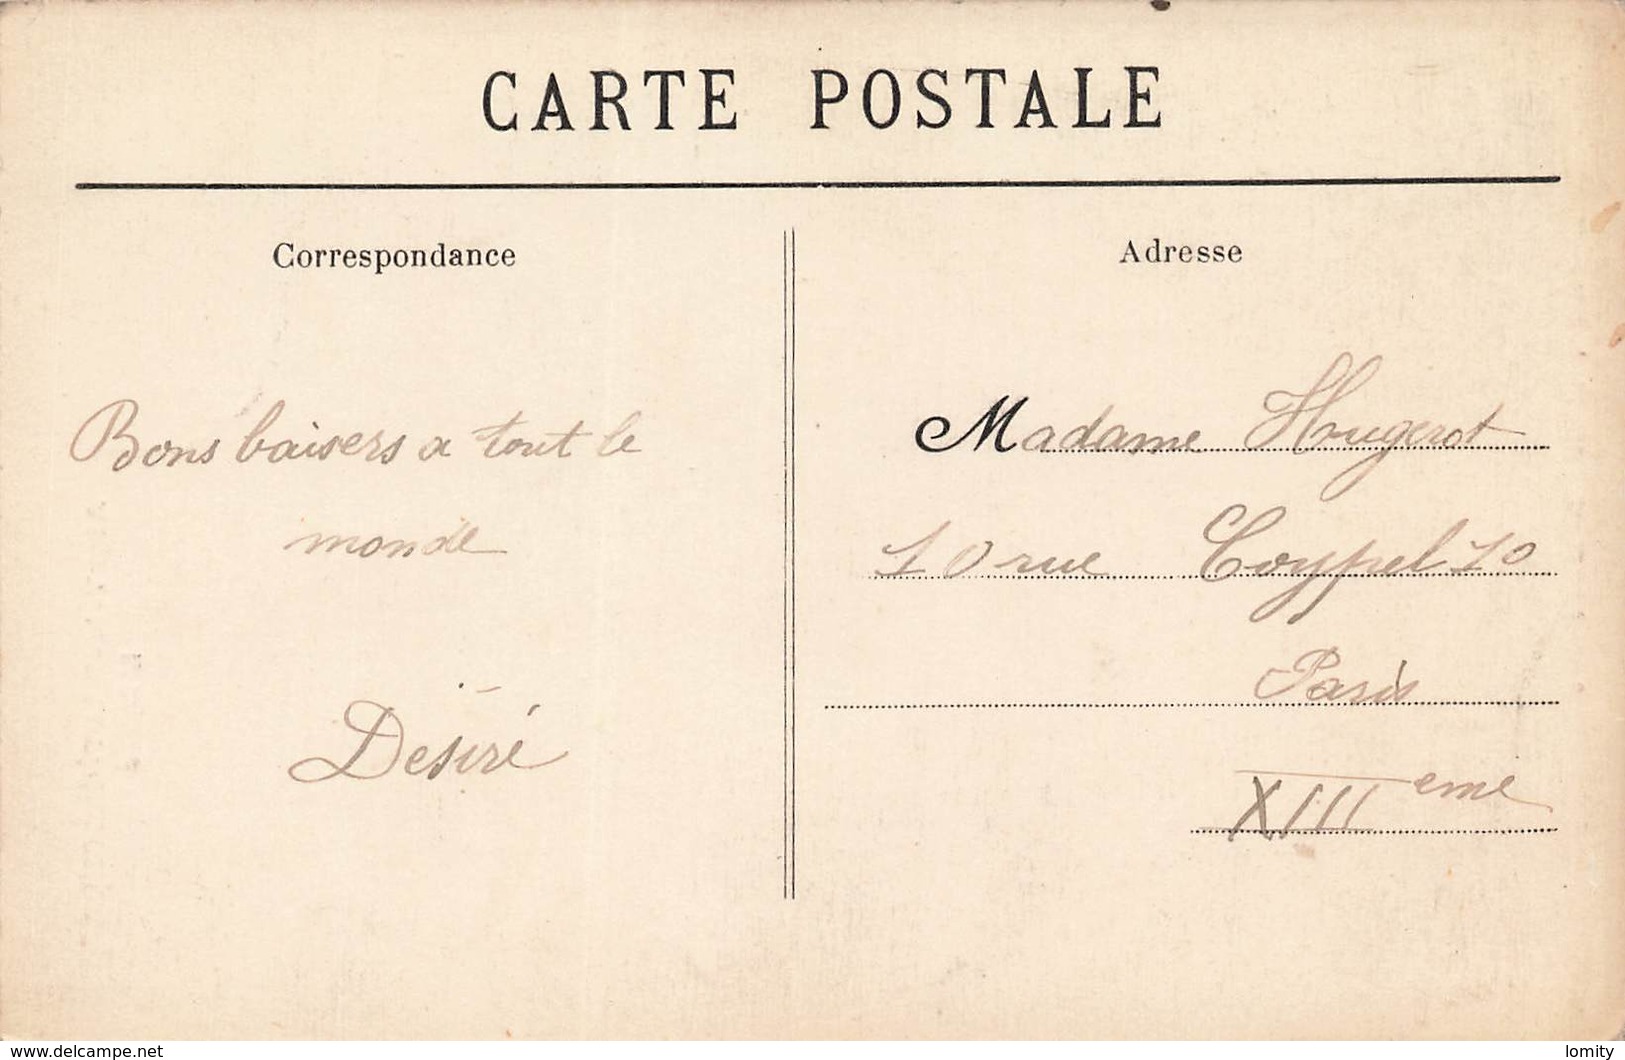 CARTE POSTALE
Correspondance
Bons baisers a tout le
monde
Désiré
Adresse
Madame Hougerot
10 rue Coypel 10
Paris
XIII eme
www.delcampe.net
lomity